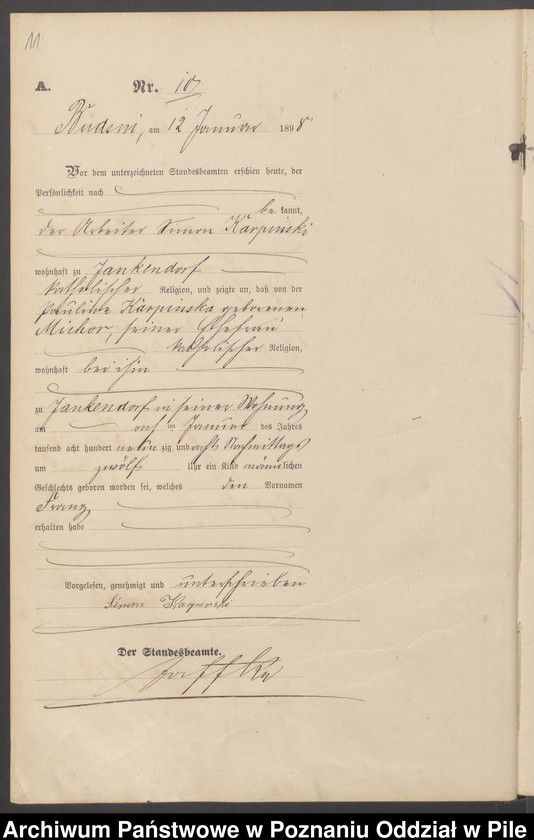 11
A.
Nr. 10
Budsin, am 12 Januar 1898
Vor dem unterzeichneten Standesbeamten erschien heute, der
Persönlichkeit nach
be kannt,
der Arbeiter Simon Karpinski
wohnhaft zu Jankendorf
katholischer Religion, und zeigte an, daß von der
Pauline Karpinska geborenen
Michor, seiner Ehefrau
katholischer Religion,
wohnhaft bei ihm
zu Jankendorf in seiner Wohnung
am acht ten Januar des Jahres
tausend acht hundert neun zig und acht Nachmittags
um zwölf Uhr ein Kind männlichen
Geschlechts geboren worden sei, welches den Vornamen
Franz
erhalten habe
Vorgelesen, genehmigt und unterschrieben
Simon
Der Standesbeamte.
Archiwum Państwowe w Poznaniu Oddział w Pile